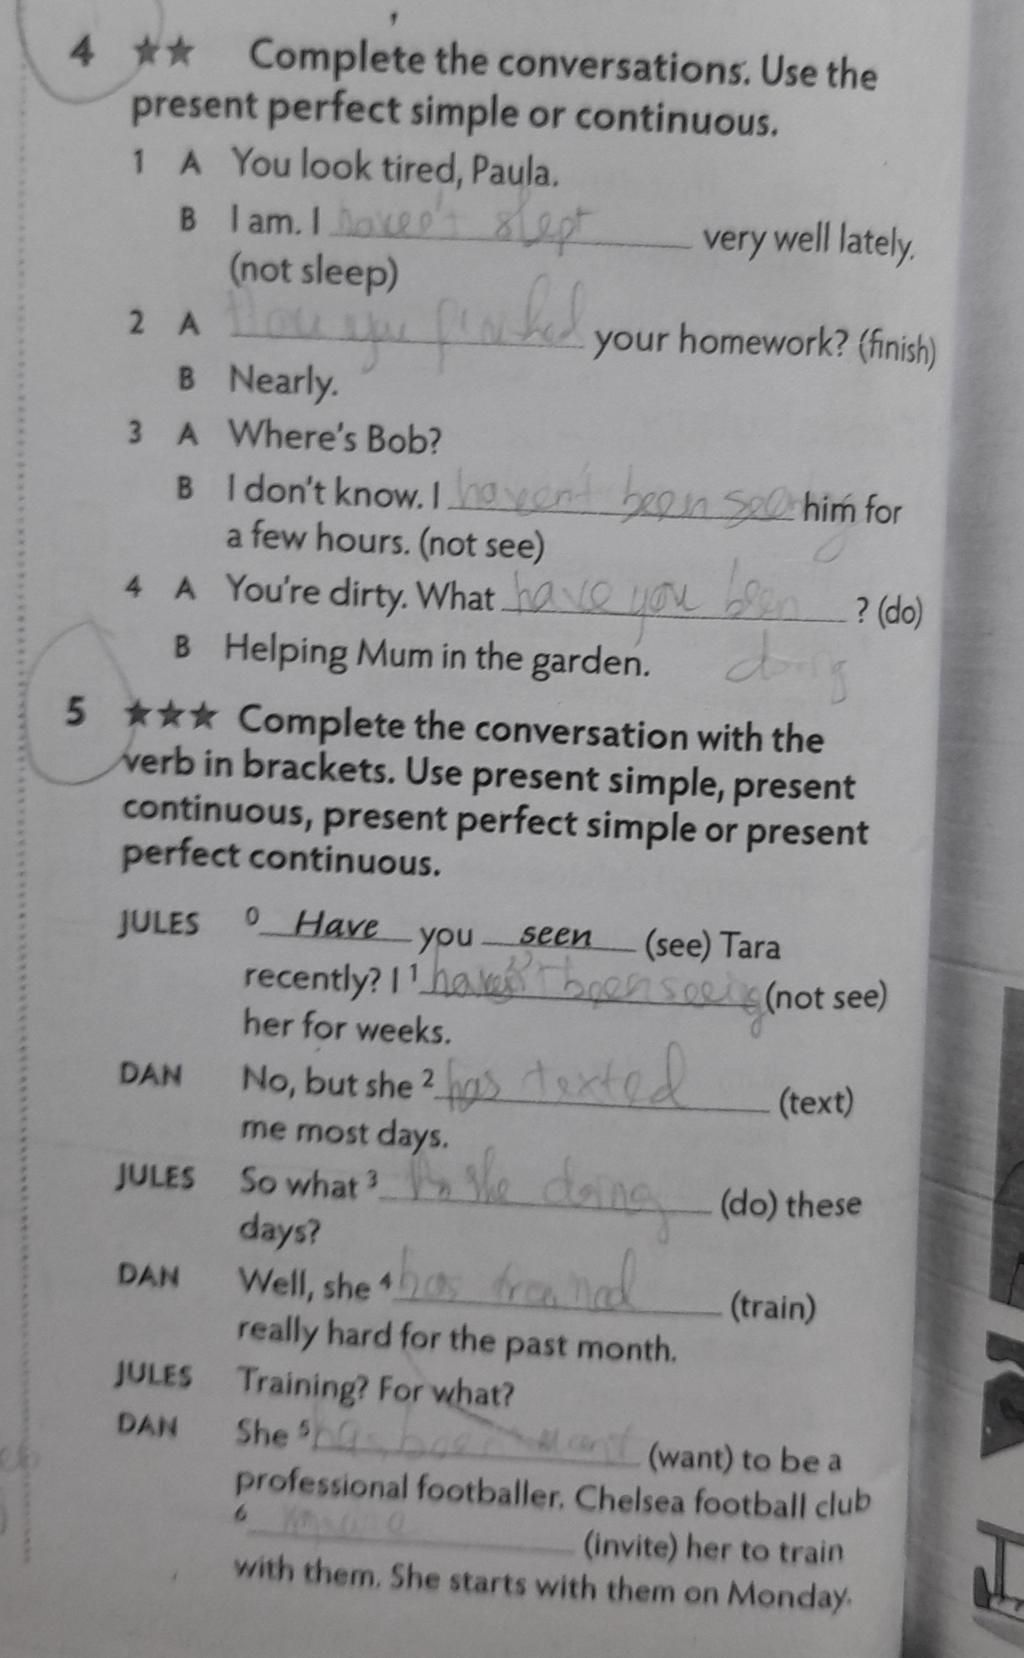 4 ★★ Complete the conversations. Use the
present perfect simple or continuous.
1 A You look tired, Paula.
B I am. I haven't slept very well lately.
(not sleep)
2 A Have you finished your homework? (finish)
B Nearly.
3 A Where's Bob?
B I don't know. I havent been seeing him for
a few hours. (not see)
4 A You're dirty. What have you been ? (do)
doing
B Helping Mum in the garden.
5 ★★★ Complete the conversation with the
verb in brackets. Use present simple, present
continuous, present perfect simple or present
perfect continuous.
JULES 0 Have you seen (see) Tara
recently? I 1 haven't been seeing (not see)
her for weeks.
DAN No, but she 2 has texted (text)
me most days.
JULES So what 3 is she doing (do) these
days?
DAN Well, she 4 has trained (train)
really hard for the past month.
JULES Training? For what?
DAN She 5 has been want (want) to be a
professional footballer. Chelsea football club
6 (invite) her to train
with them. She starts with them on Monday.